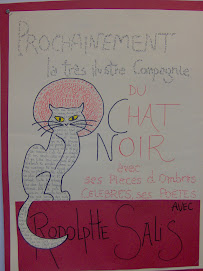 PROCHAINEMENT
la très ilustre Compagnie
DU
CHAT
NOIR
avec
ses Pièces d'Ombres
CELEBRES ses POETES
AVEC
RODOLPHE SALIS